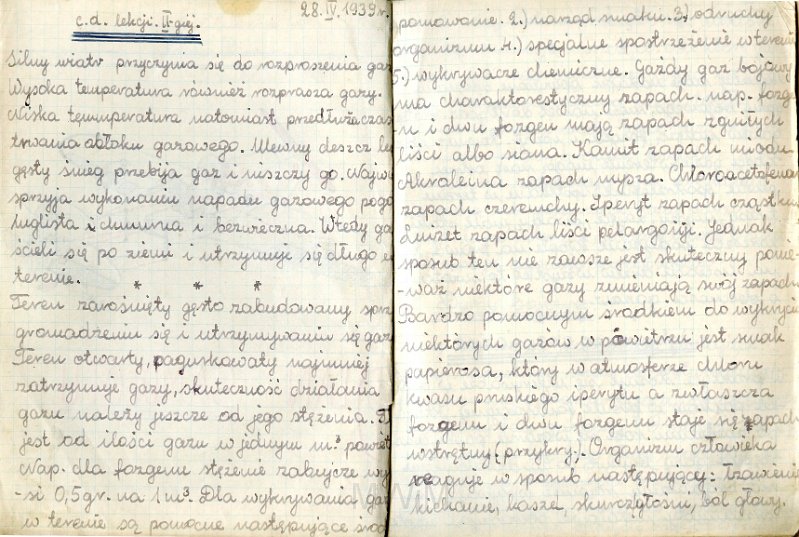 28.IV.1939r.
c.d. lekcji. II-giej.
Silny wiatr przyczynia się do rozproszenia gaz
Wysoka temperatura również rozprasza gazy.
Niska temmperatura natomiast przedłuża czas
trwania obłoku gazowego. Ulewny deszcz lub
gęsty śnieg przebija gaz i niszczy go. Najwię
sprzyja wykonaniu napadu gazowego pogo
mglista i chmurna i bezwieczna. Wtedy gaz
ścieli się po ziemi i utrzymuje się długo w
terenie.
* * *
Teren zarośnięty gęsto zabudowany sprz
gromadzeniu się i utrzymywaniu się gaz
Teren otwarty, pagurkowaty najmniej
zatrzymuje gazy, skuteczność działania
gazu należy jeszcze od jego stężenia. T
jest od ilości gazu w jednym m³ powiet
Nap. dla fozgenu stężenie zabujcze wy
-si 0,5gr. na 1 m³. Dla wykrywania gaz
w terenie są pomocne następujące środ
poznawanie. 2.) narząd smaku. 3.) odruchy
organizmu 4.) specjalne spostrzeżenie w terenie
5.) wykrywacze chemiczne. Każdy gaz bojowy
ma charaktorestyczny zapach. nap. fozge-
n i dwu fozgen mają zapach zgniłych
liści albo siana. Kamit zapach miodu.
Akroleina zapach mysza. Chloroacetofenon
zapach czeremchy. Iperyt zapach cząstku
Luizet zapach liści pelargonji. Jednak
sposub ten nie zawsze jest skuteczny ponie-
waż niektóre gazy zmieniają swój zapach.
Bardzo pomocnym środkiem do wykryci
niektórych gazów w powietrzu jest smak
papierosa, który w atmosferze chloru
kwasu pruskiego iperytu a zwłaszcza
fozgenu i dwu fozgenu staje się zapach
wstrętny (przykry). Organizm człowieka
reaguje w sposub następujący: Łzawienie
kichanie, kaszel, skurcz głośni, ból głowy.
MWM